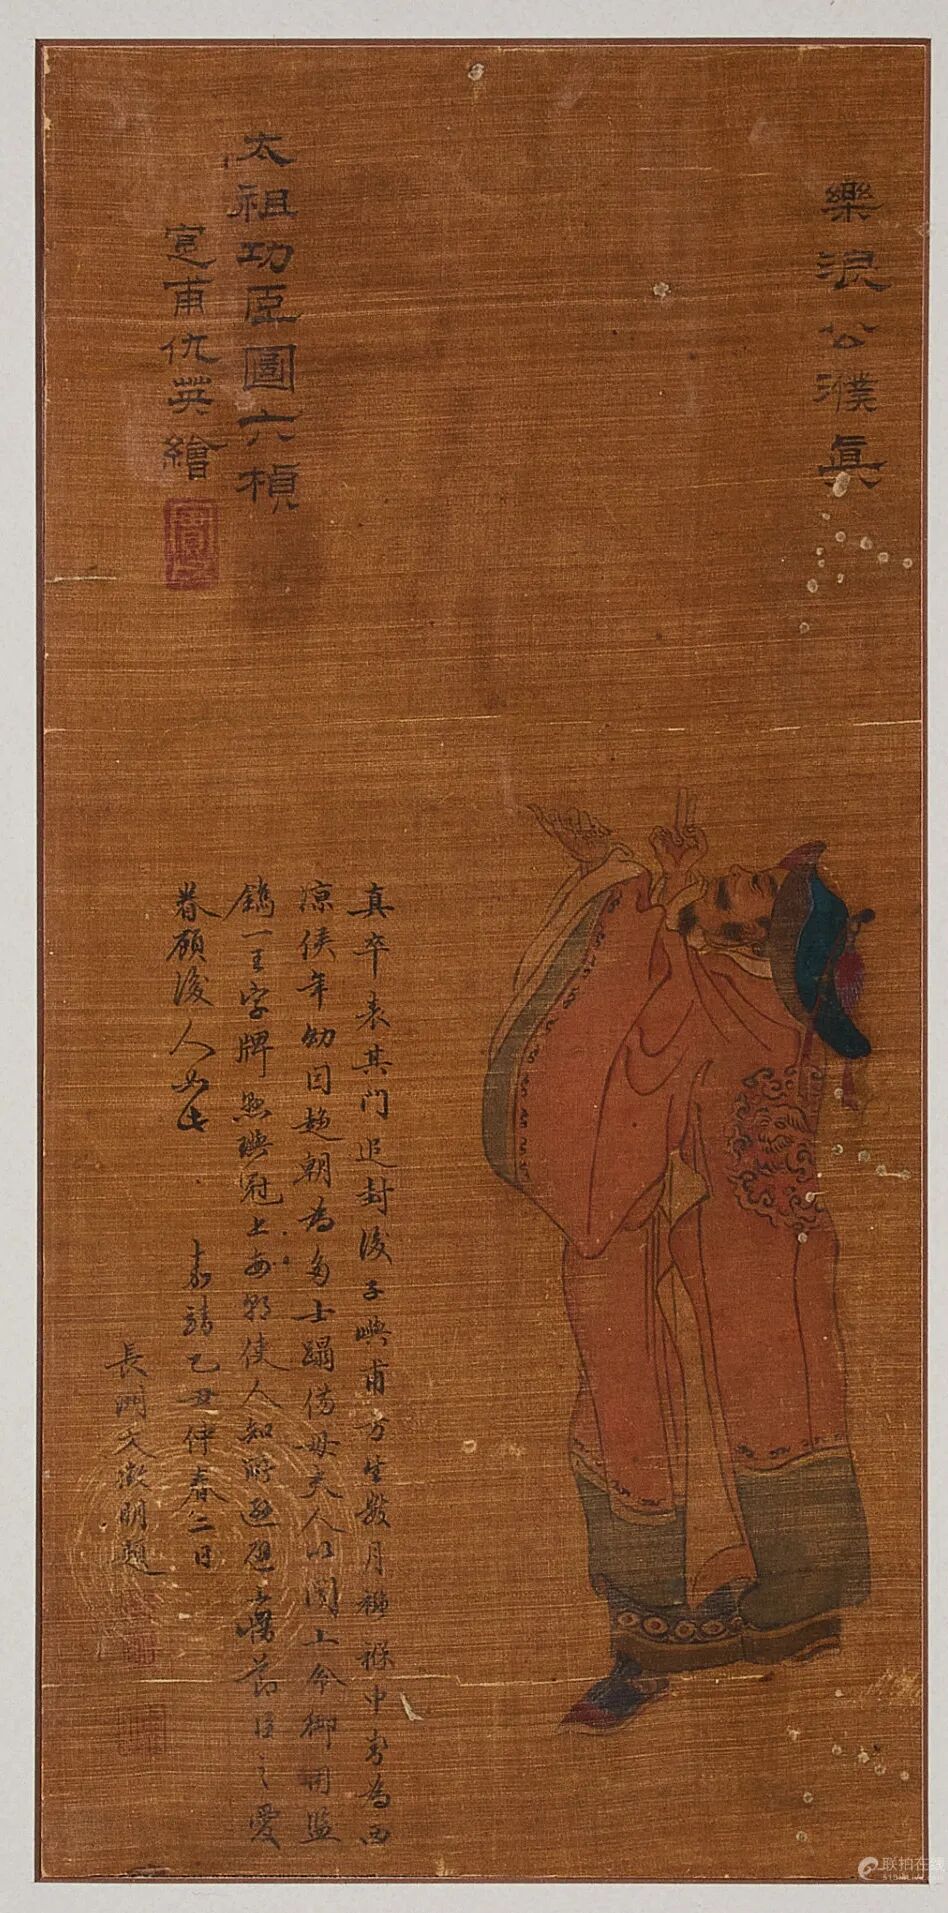 樂浪公濮真
太祖功臣圖六楨
寔甫仇英繪
真卒表其門追封後子嶼甫方生數月襁褓中封為西
涼侯年幼因趨朝為多士蹋傷母夫人以聞上令御用監
鐫一王字牌懸嶼冠上每朝使人知所避
臣之愛
眷顧後人如此
嘉靖乙丑仲春二日
長洲文徵明題
联拍在线